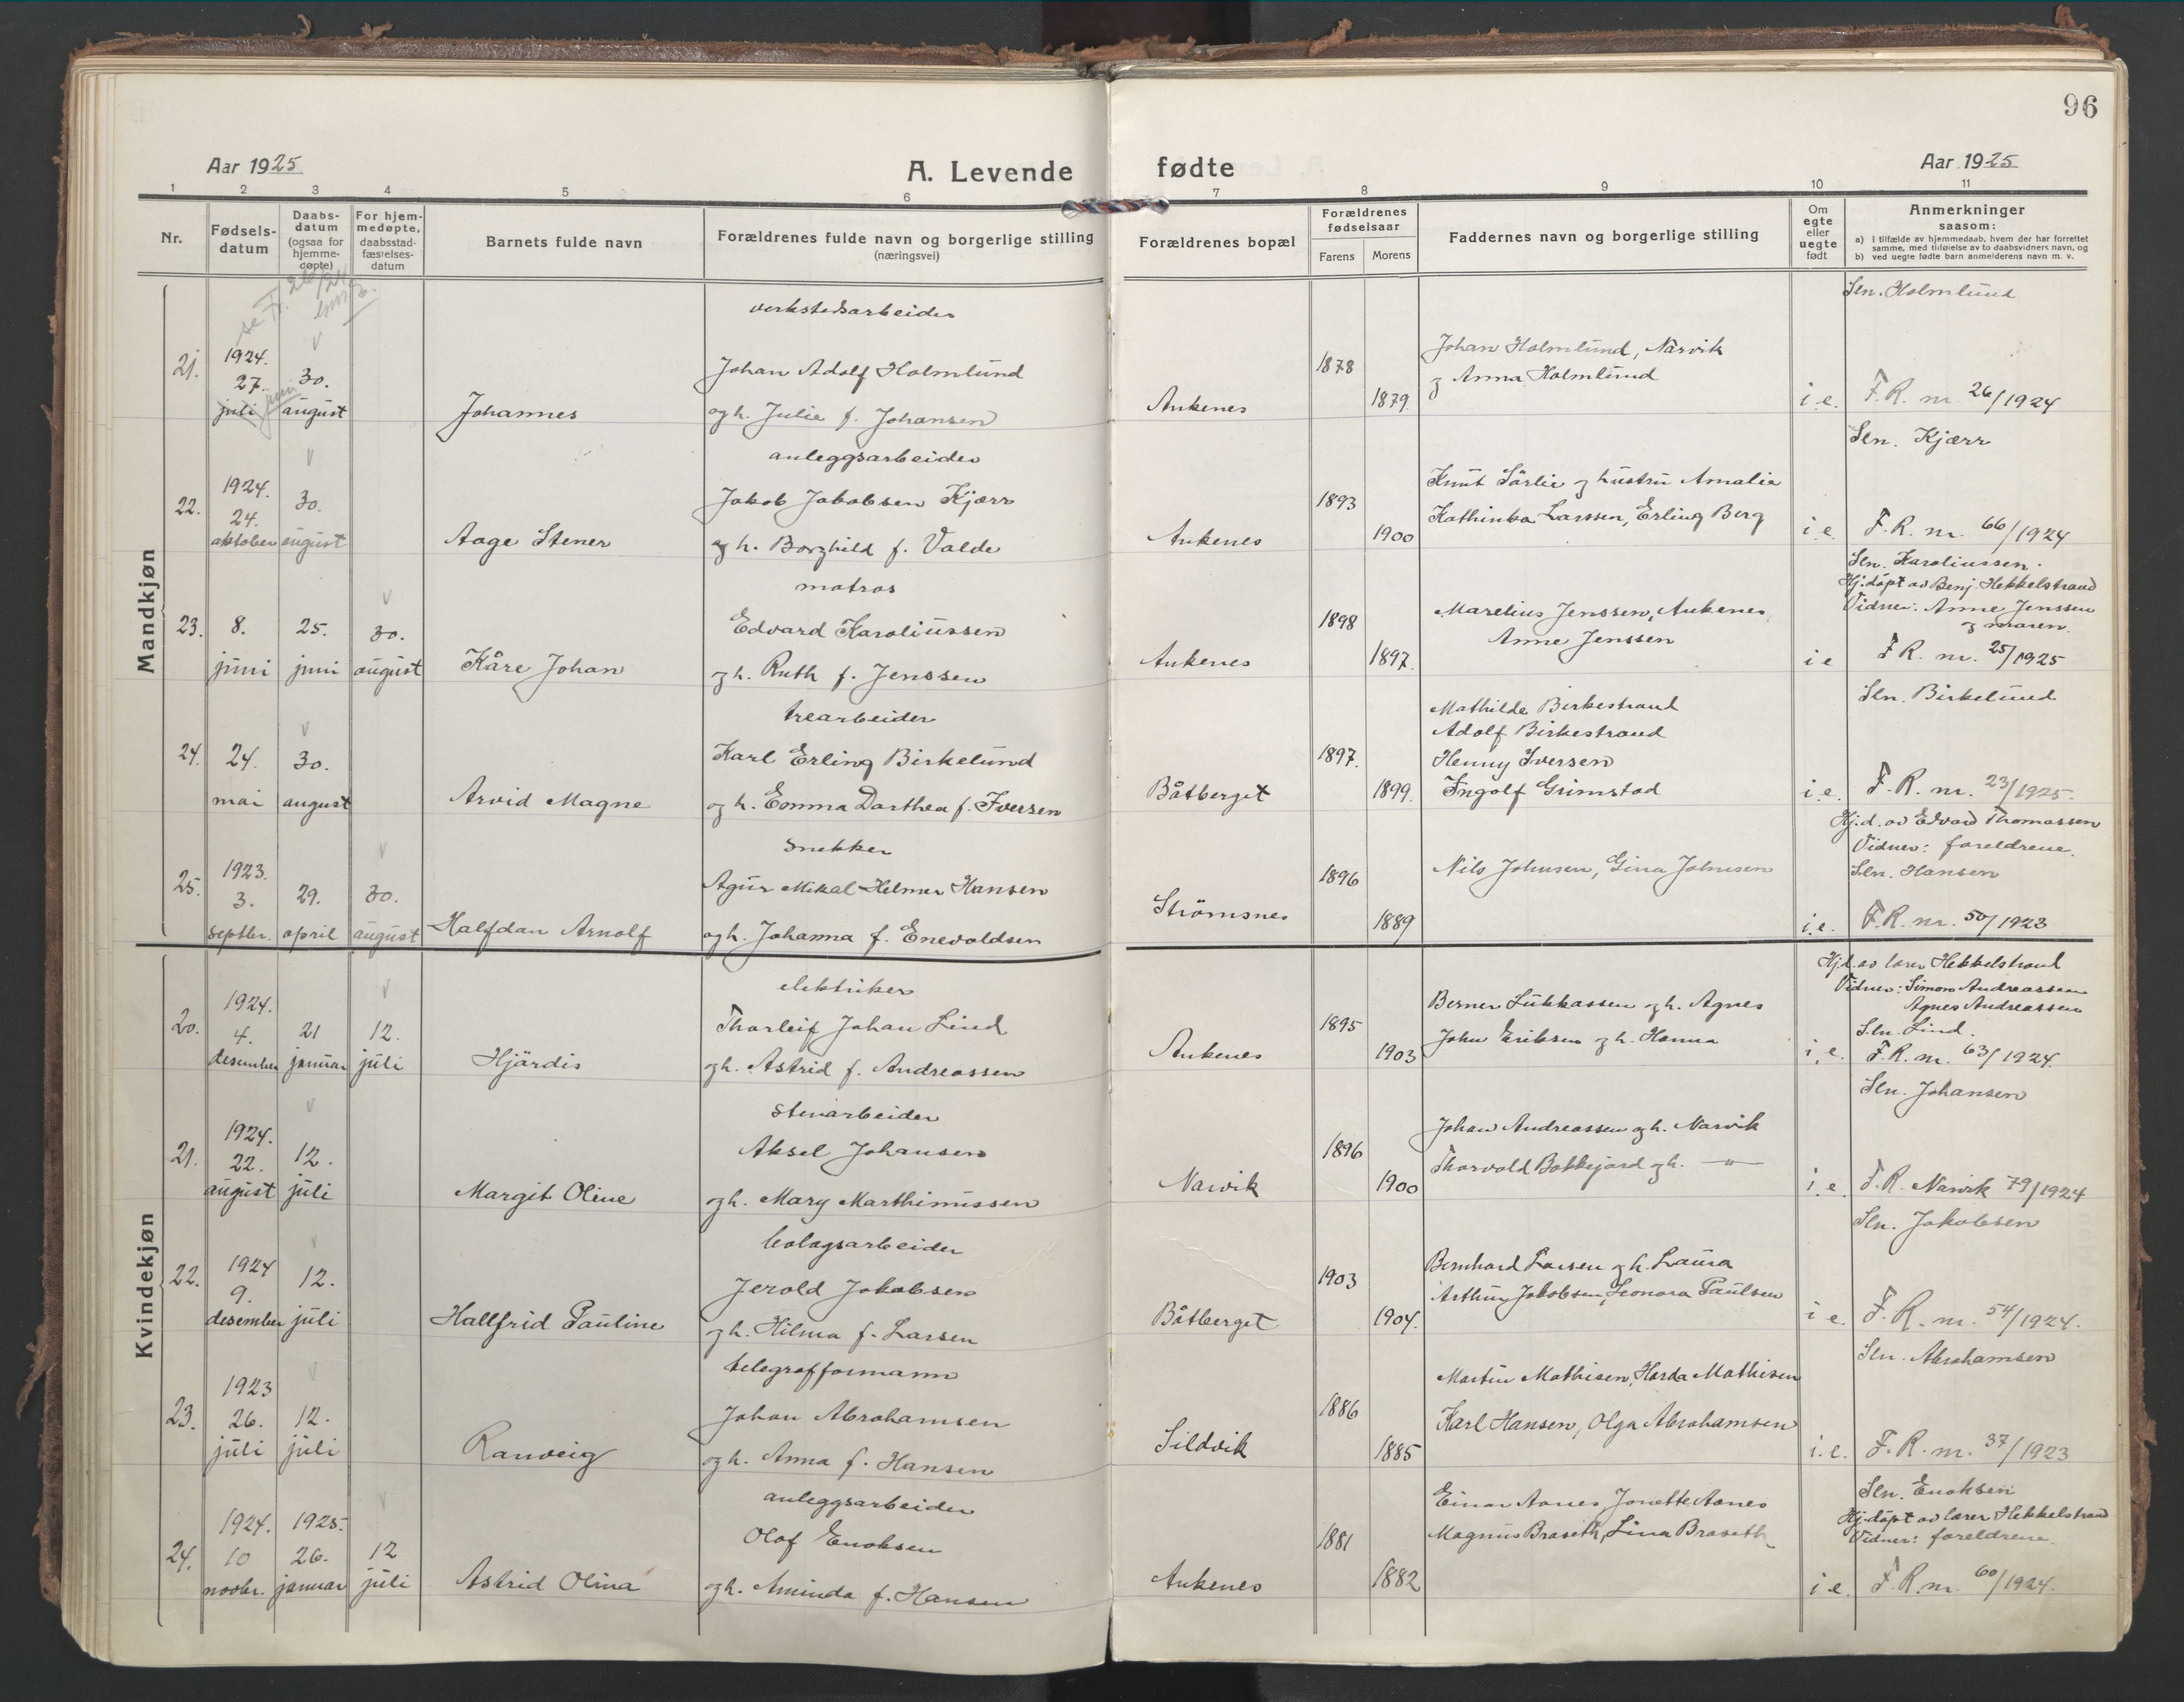 96
Aar 1925
A. Levende fødte
Aar 1925
1 2 3 4 5 6 7 8 9 10 11
Nr.
Fødsels-
datum
Daabs-
datum
(ogsaa for
hjemme-
døpte)
For hjem-
medøpte,
daabsstad-
fæstelses-
datum
Barnets fulde navn
Forældrenes fulde navn og borgerlige stilling
(næringsvei)
Forældrenes bopæl
Forældrenes
fødselsaar
Farens Morens
Faddernes navn og borgerlige stilling
Om
egte
eller
uegte
født
Anmerkninger
saasom:
a) i tilfælde av hjemmedaab, hvem der har forrettet
samme, med tilføielse av to daabsvidners navn, og
b) ved uegte fødte barn anmelderens navn m. v.
Mandkjøn
se F. 26/24
21.
1924.
27.
juli
juni
30.
august
Johannes
verkstedsarbeider
Johan Adolf Holmlund
og h. Julie f. Johansen
Ankenes
1878
1879.
Johan Holmlund, Narvik
og Anna Holmlund
i e.
Sln. Holmlund
F. R. nr. 26/1924
22.
1924.
24.
oktober
30.
august
Aage Stener
anleggsarbeider
Jakob Jakobsen Kjærr
og h. Borghild f. Valde
Ankenes
1893
1900
Knut Sørlie og hustru Amalie
Kathinka Larssen, Erling Berg
i e.
Sln. Kjærr
F. R. nr. 66/1924
23.
8.
juni
25.
juni
30.
august
Kåre Johan
matros
Edvard Karoliussen
og h. Ruth f. Jenssen
Ankenes
1898
1897.
Marelius Jenssen, Ankenes
Anne Jenssen
i e
Sln. Karoliussen.
Hj.døpt av Benj. Hekkelstrand
Vidner: Anne Jenssen
og maren.
F R. nr. 25/1925
24.
24.
mai
30.
august
Arvid Magne
trearbeider
Karl Erling Birkelund
og h. Emma Dorthea f. Iversen
Båtberget
1897.
1899.
Mathilde Birkestrand
Adolf Birkestrand
Henny Iversen
Ingolf Grimstad
i e.
Sln. Birkelund
F. R. nr. 23/1925.
25.
1923.
3.
septbr.
29.
april
30.
august
Halfdan Arnolf
snekker
Agur Mikal Helmer Hansen
og h. Johanna f. Enevoldsen
Strömsnes
1896
1889
Nils Johnsen, Gina Johnsen
i.e.
Hj.d. av Edvard Thomassen
Vidner: foreldrene.
Sln. Hansen
F.R. nr. 50/1923
Kvindekjøn
20.
1924.
4.
desember
21
januar
12.
juli
Hjördis
elektriker
Thorleif Johan Lind
og h. Astrid f. Andreassen
Ankenes
1895
1903
Berner Lukkassen og h. Agnes
John Eriksen og h. Hanna
i e.
Hj.d. av lærer Hekkelstrand
Vidner: Simon Andreassen
Agnes Andreassen
Sln. Lind.
F. R. nr. 63/1924.
21.
1924.
22.
august
12.
juli
Margit Oline
stenarbeider
Aksel Johansen
og h. Mary Marthinussen
Narvik
1896
1900
Johan Andreassen og h. Narvik
Thorvold Bokkejord og h. — " —
i. e.
Sln. Johansen
F. R. Narvik 79/1924
22.
1924
9.
desember
12.
juli
Hallfrid Pauline
bolagsarbeider
Jerold Jakobsen
og h. Hilma f. Larsen
Båtberget
1903
1904.
Bernhard Larsen og h. Laura
Arthur Jakobsen, Leonora Paulsen
i e.
Sln. Jakobsen
F. R. nr. 54/1924.
23.
1923
26.
juli
12.
juli
Ranveig
telegrafformann
Johan Abrahamsen
og h. Anna f. Hansen
Sildvik
1886
1885
Martin Mathisen, Harda Mathisen
Karl Hansen, Olga Abrahamsen
i. e.
Sln. Abrahamsen
F. R. nr. 37/1923
24.
1924.
10
novbr.
1925.
26.
januar
12
juli
Astrid Olina
anleggsarbeider
Olof Enoksen
og h. Aminda f. Hansen
Ankenes
1881
1882
Einar Aanes, Jonette Aanes
Magnus Braseth, Lina Braseth
i e.
Sln. Enoksen
Hj.døpt av lærer Hekkelstrand
Vidner: foreldrene.
F. R. nr. 60/1924.